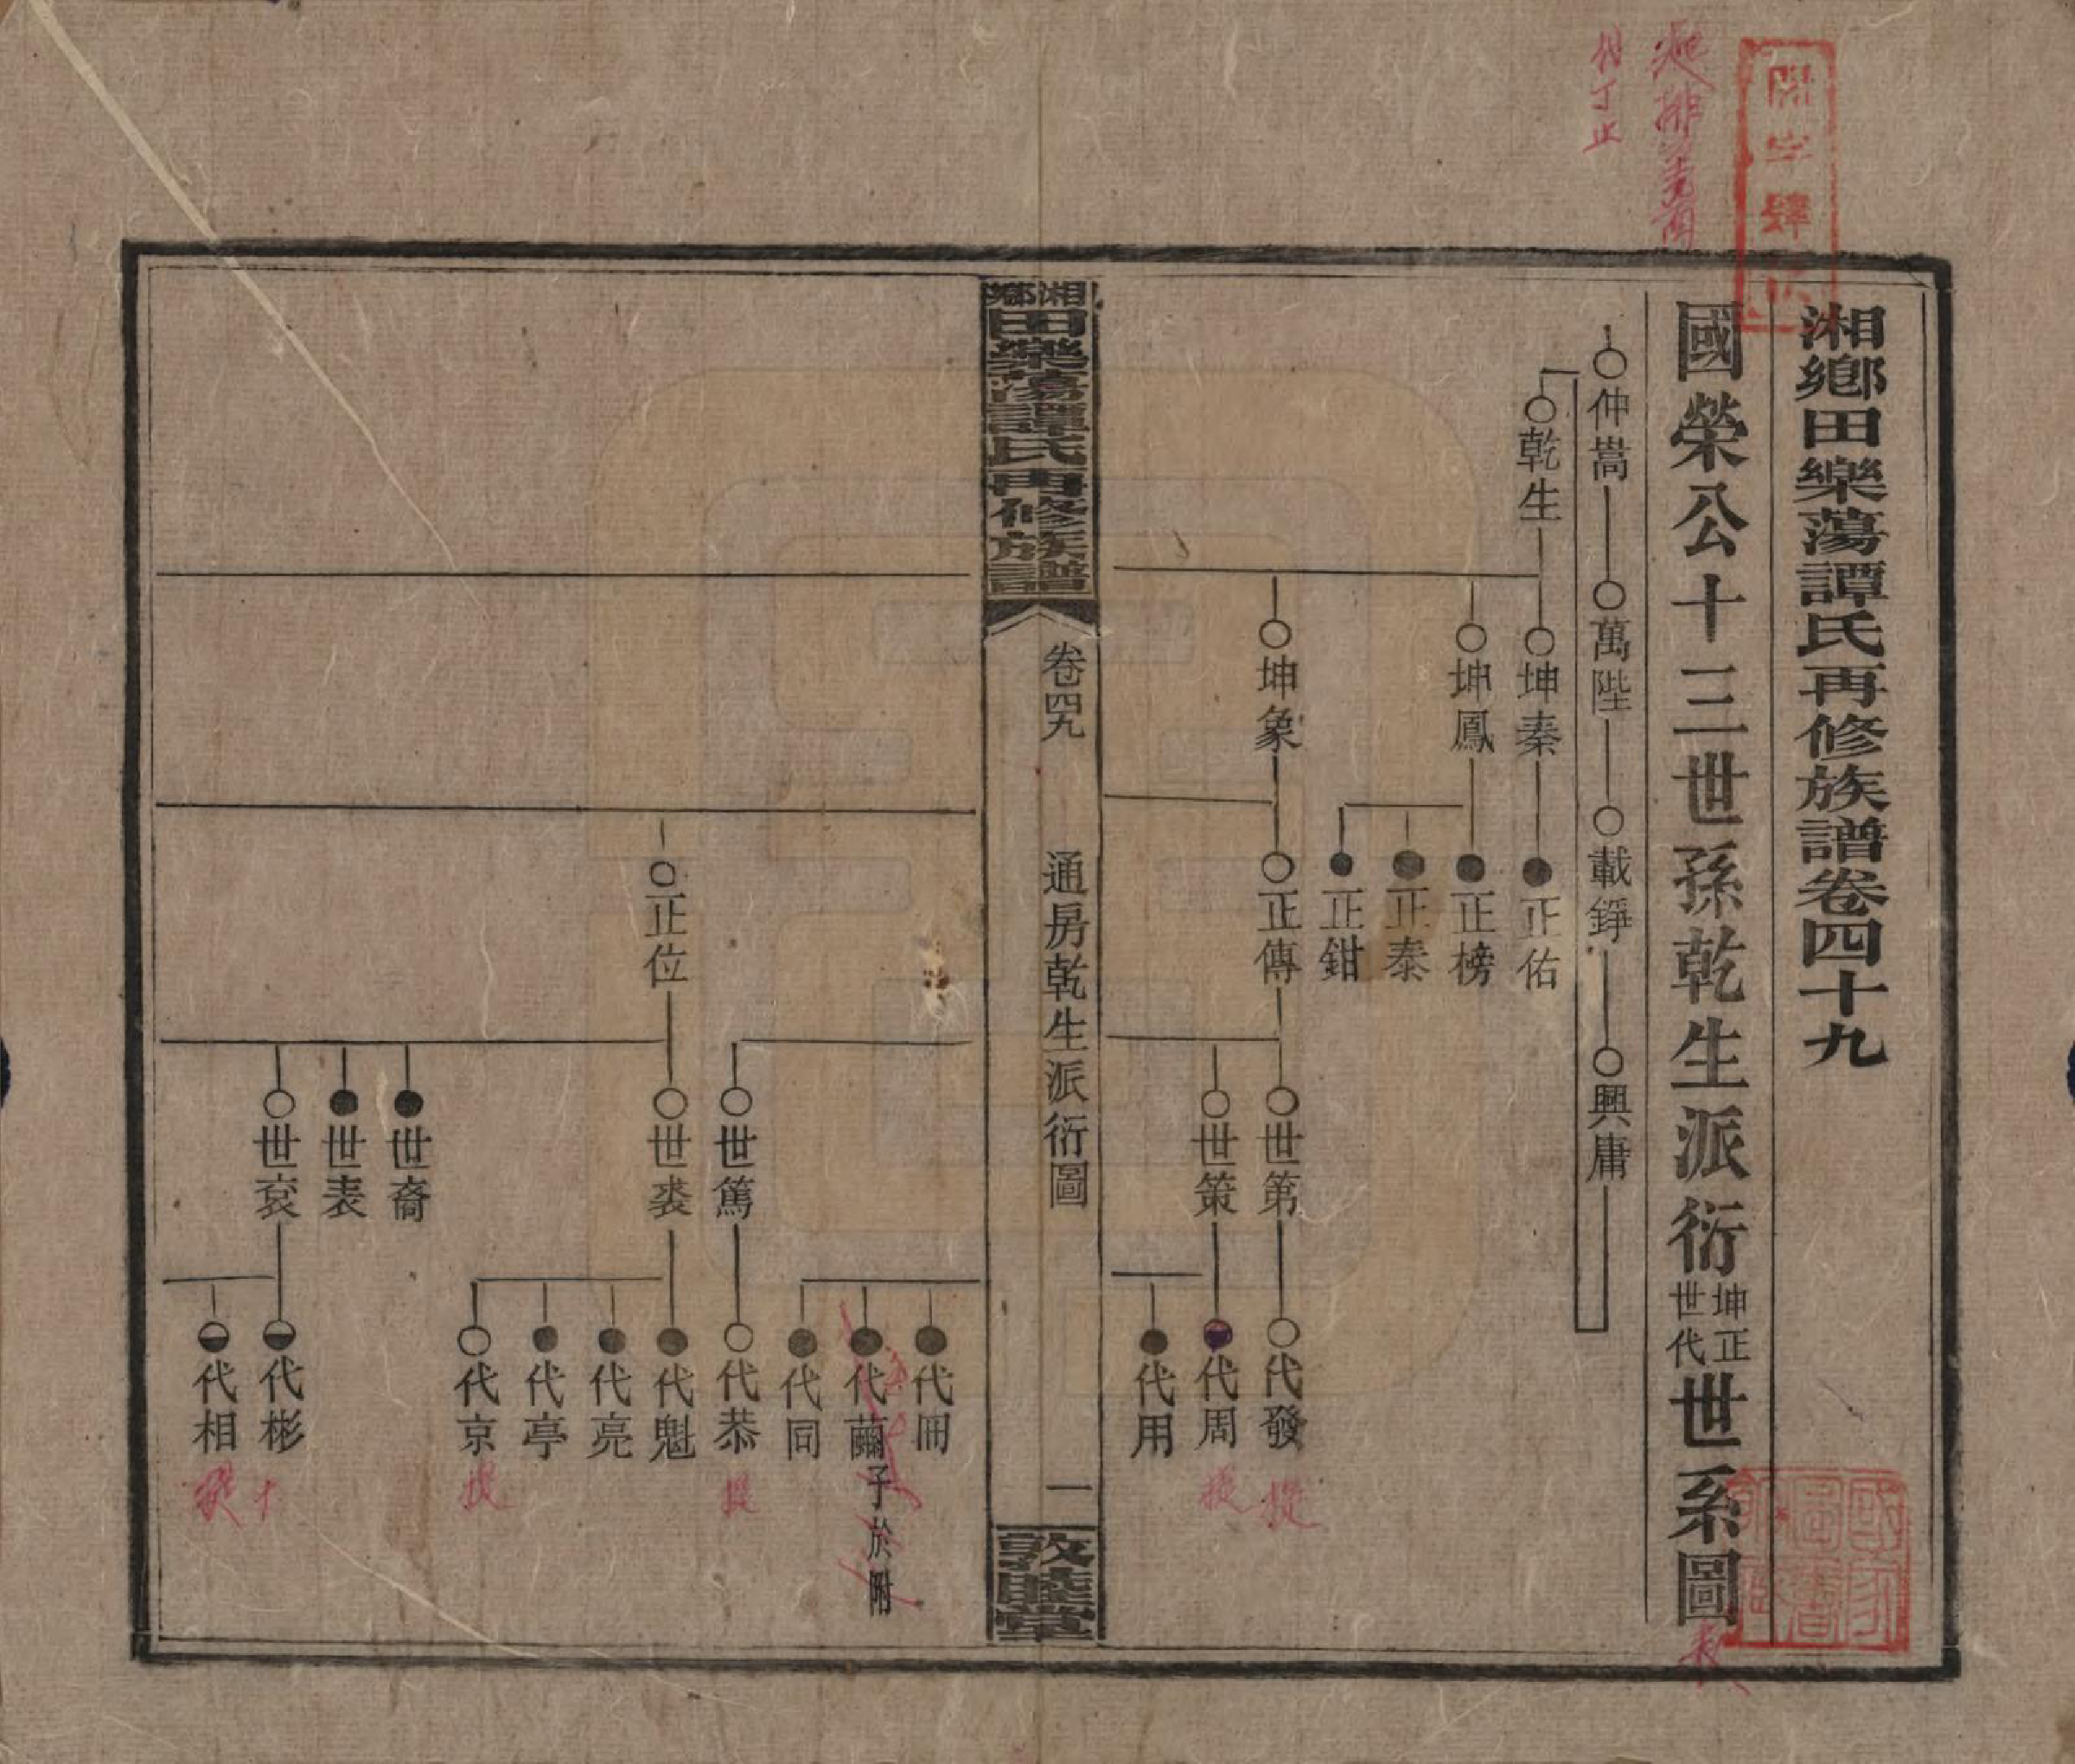 湘鄉田樂蕩譚氏再修族譜卷四十九
國榮公十三世孫乾生派衍坤正世代世系圖
仲嵩
萬陛
載錚
興庸
乾生
坤秦
正佑
坤鳳
正榜
正泰
正鉗
坤象
正傳
世第
代發
世策
代周
代用
湘鄉田樂蕩譚氏再修族譜
卷四九
通房乾生派衍圖
一
敦睦堂
代冊
代繭子於附
代同
世篤
代恭
正位
世裘
代魁
代亮
代亭
代京
世裔
世表
世袞
代彬
代相